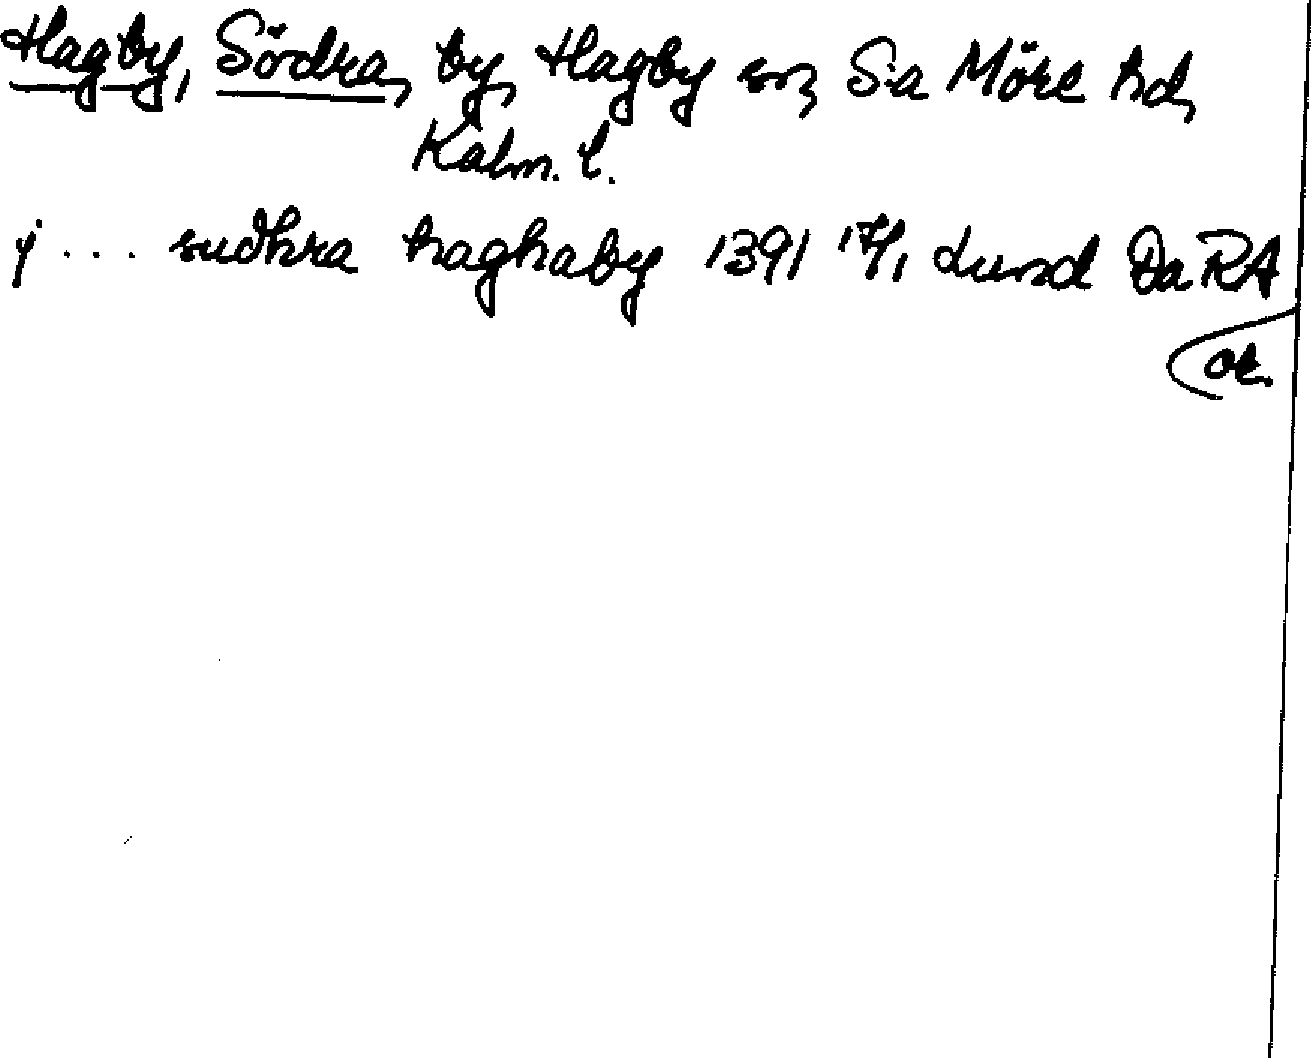 Hagby, Södra, by, Hagby sn, S:a Möre hd,
Kalm. l.
j ... sudhra haghaby 1391 17/1 Lund Da RA
or.